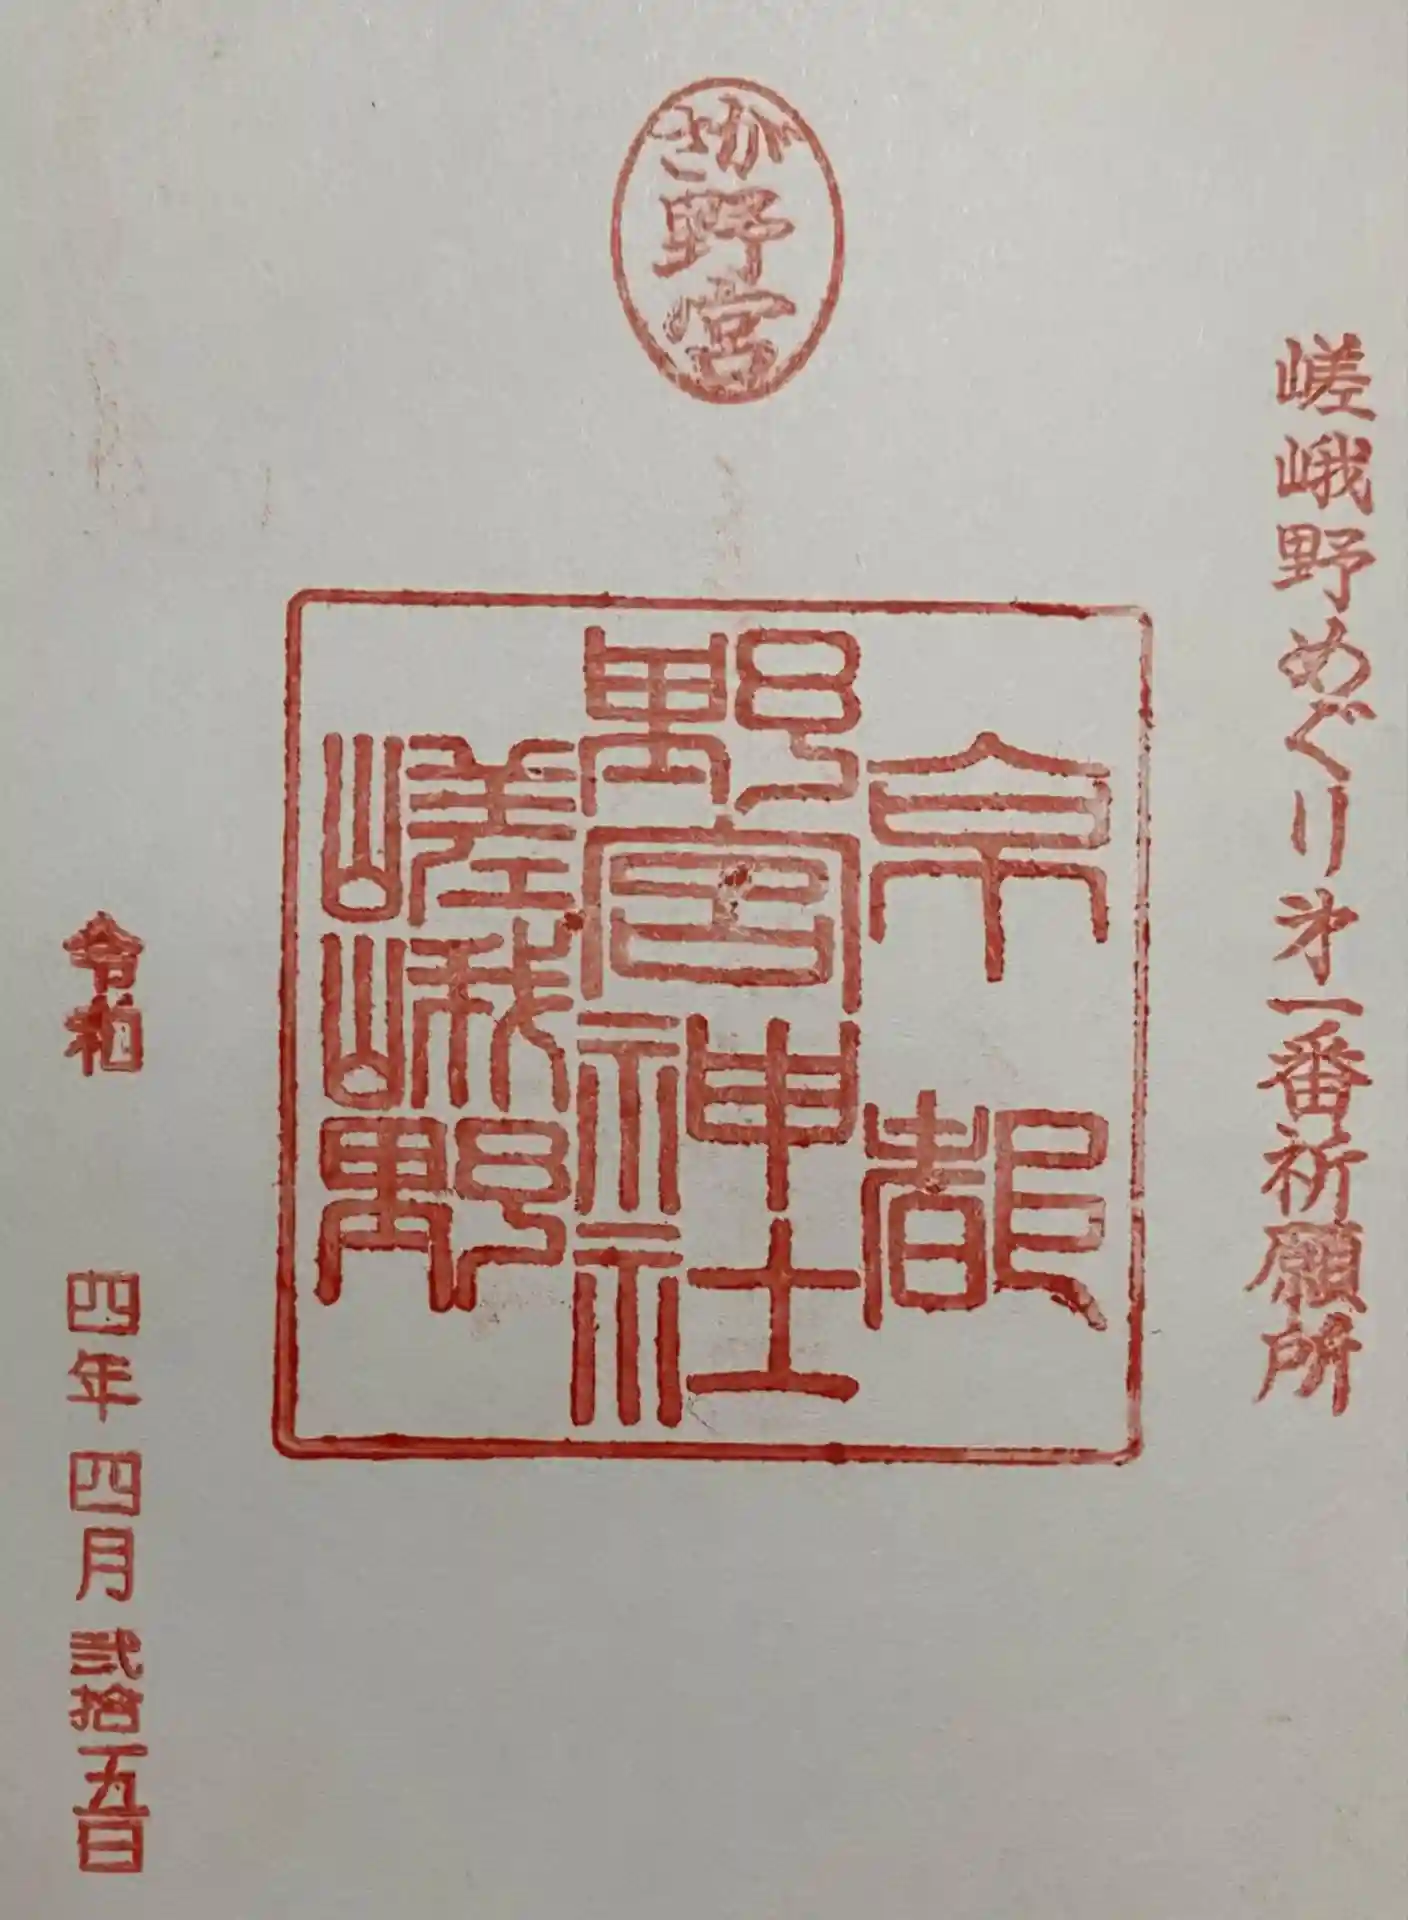 嵯峨野めぐり㐧一番祈願所
さが
野宮
京都
野宮神社
嵯峨野
令和 四年四月弐拾五日